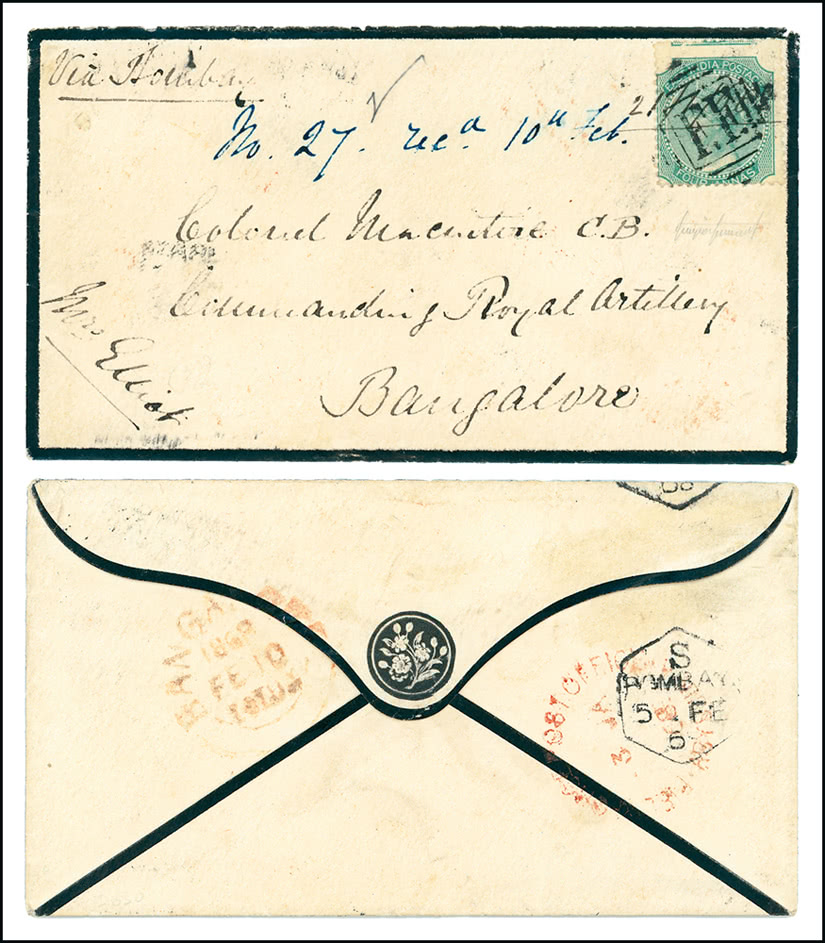 Via Bombay
No. 27. recd 10th Feb. 21
EAST INDIA POSTAGE
FOUR ANNAS
Colonel Macintire C.B.
Commanding Royal Artillery
Bangalore
Mrs Elliot
68
BANGALORE
1868
FE 10
POST OFFICE
3 JA
S
BOMBAY
5 FE
6